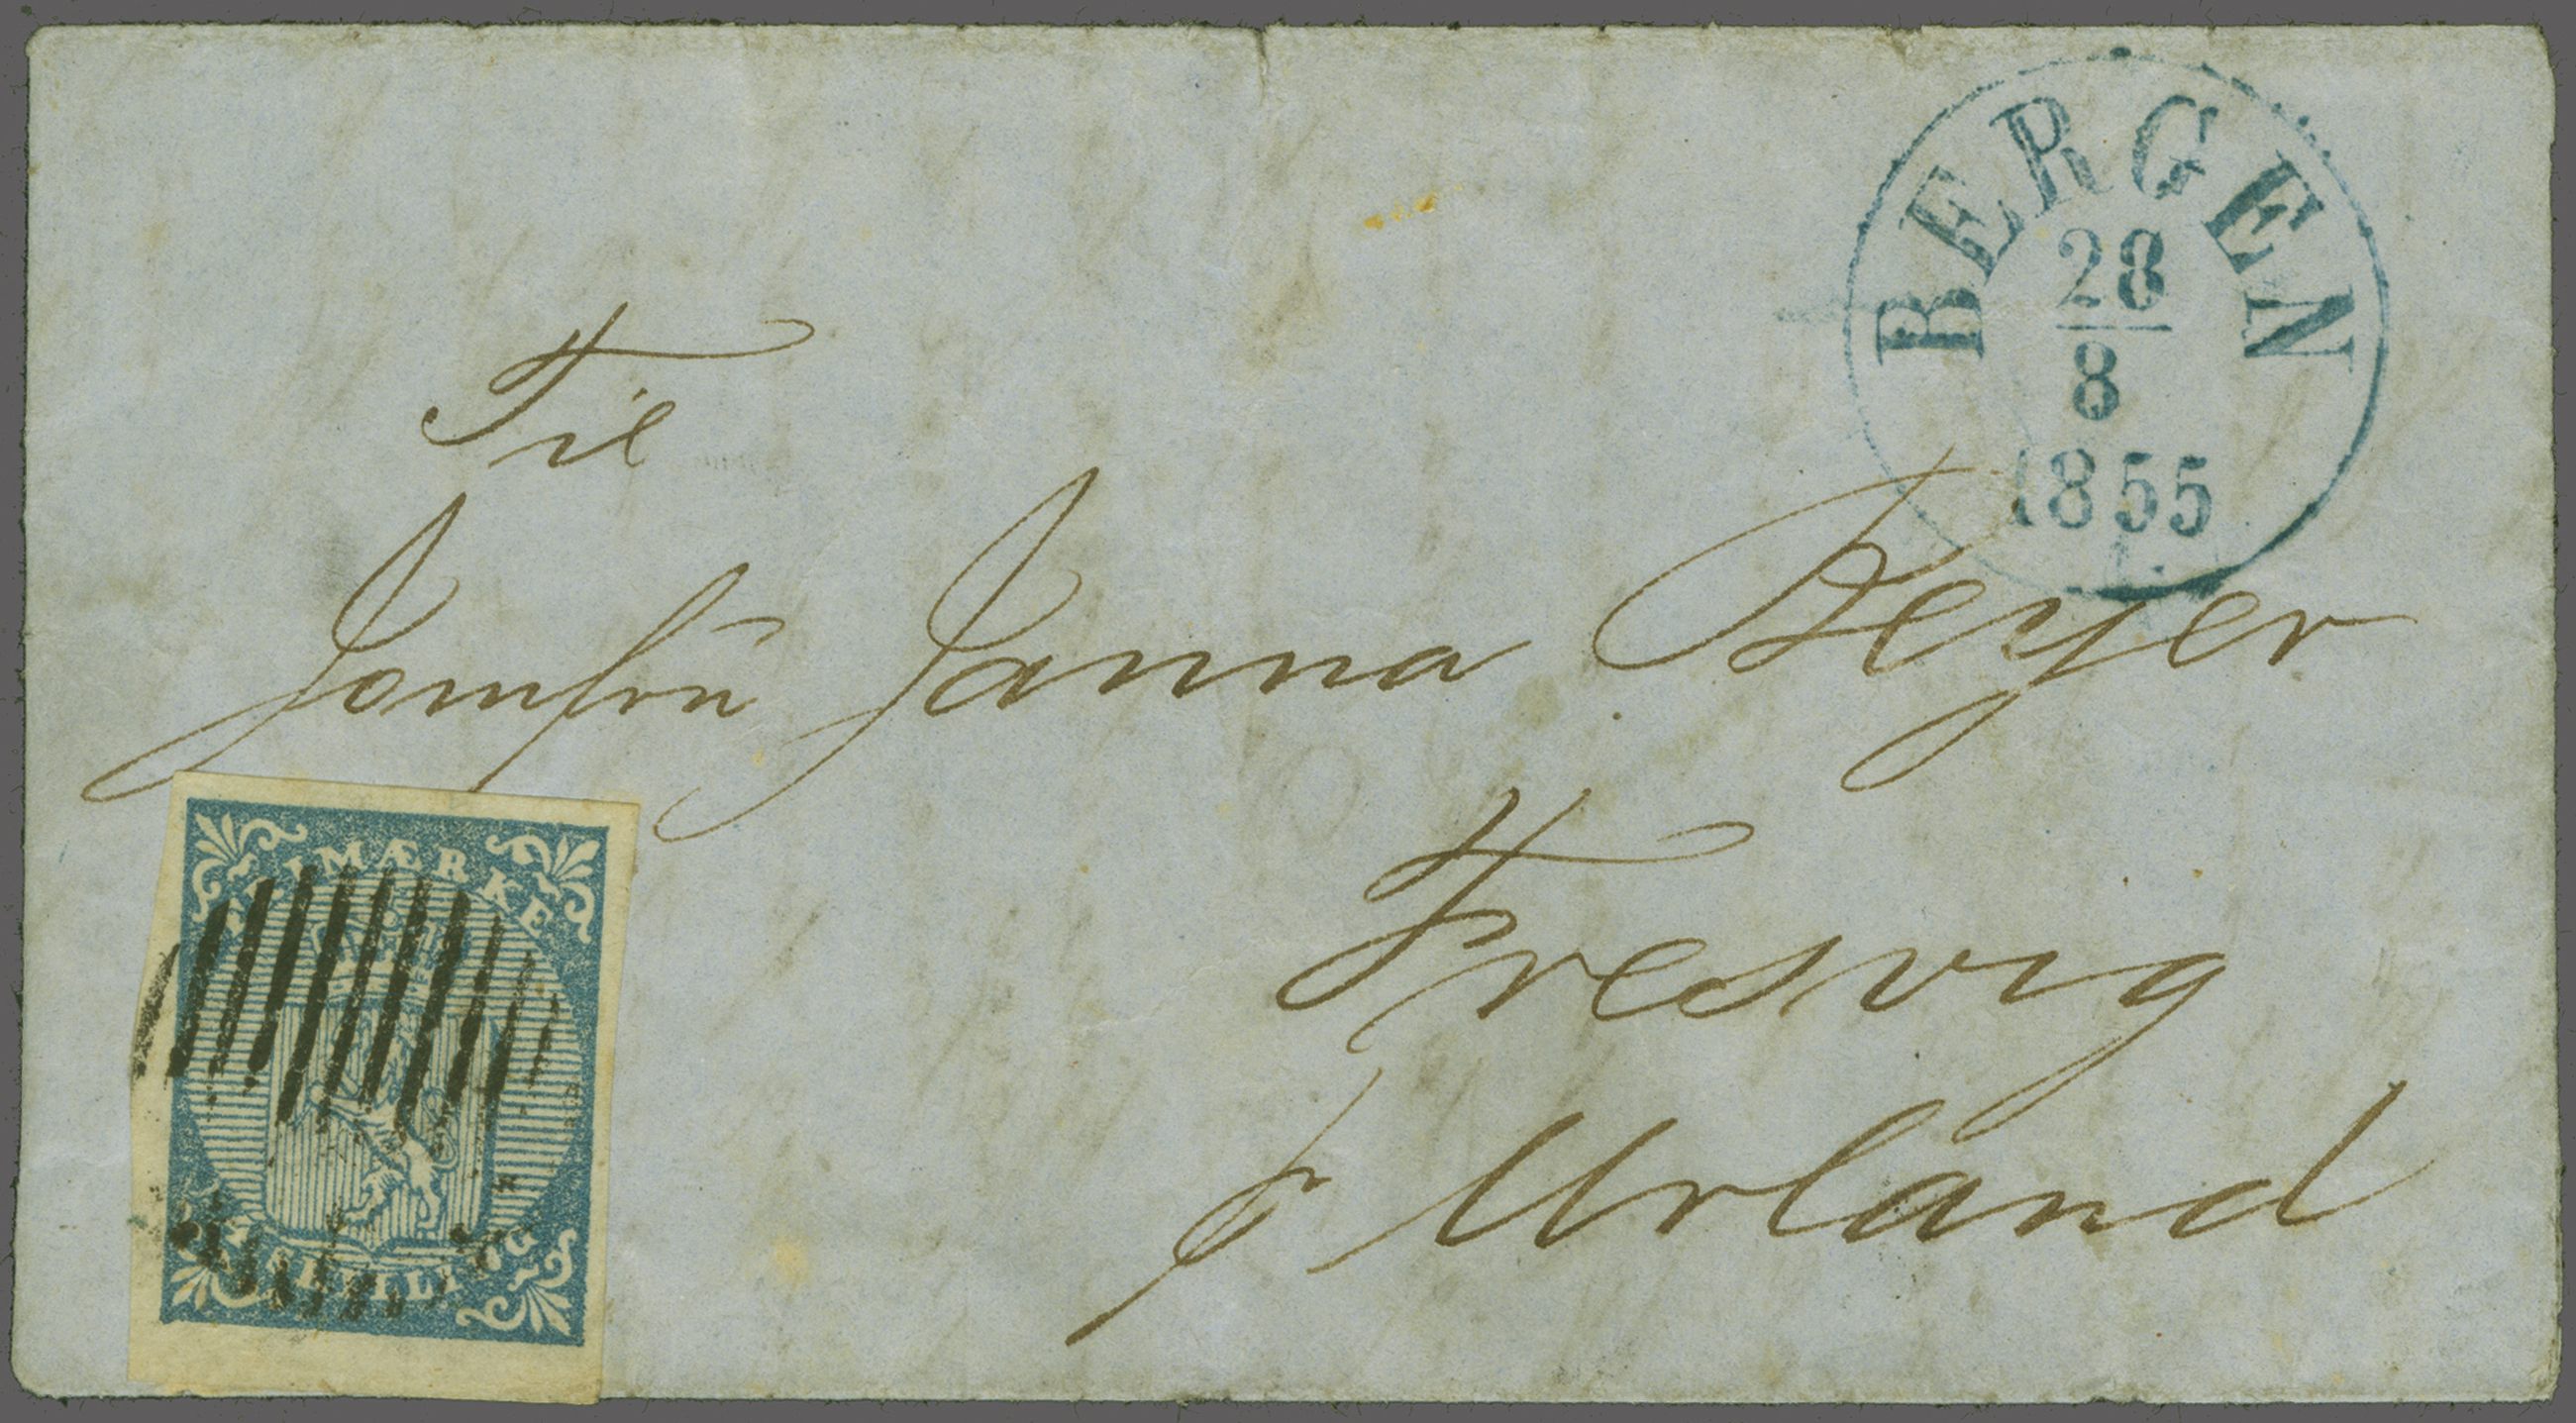 BERGEN
28
8
1855
Til
Jomfrü Janna Beyer
Fresvig
p Urland
FRIMÆRKE
4 SKILLING